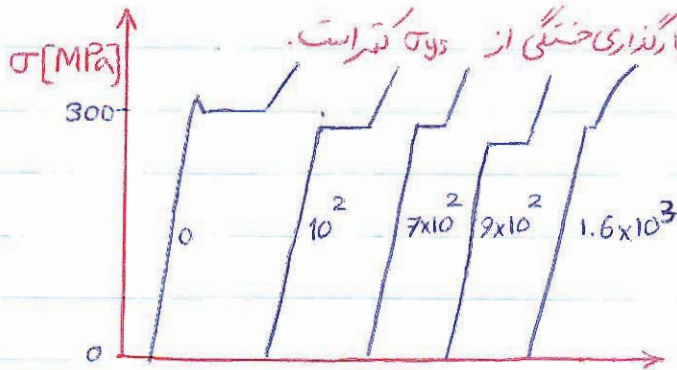 بارگذاری خستگی از σys کمتر است.
σ[MPa]
300
0
0
10²
7x10²
9x10²
1.6x10³